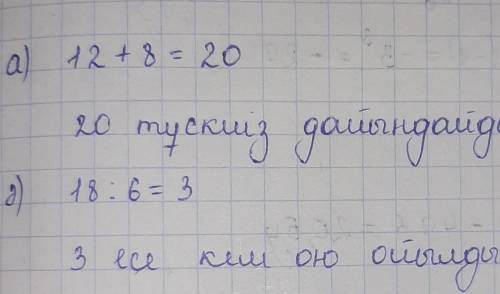 а) 12 + 8 = 20
20 тускиіз дайындайды
б) 18 : 6 = 3
3 есе кем ою ойылды